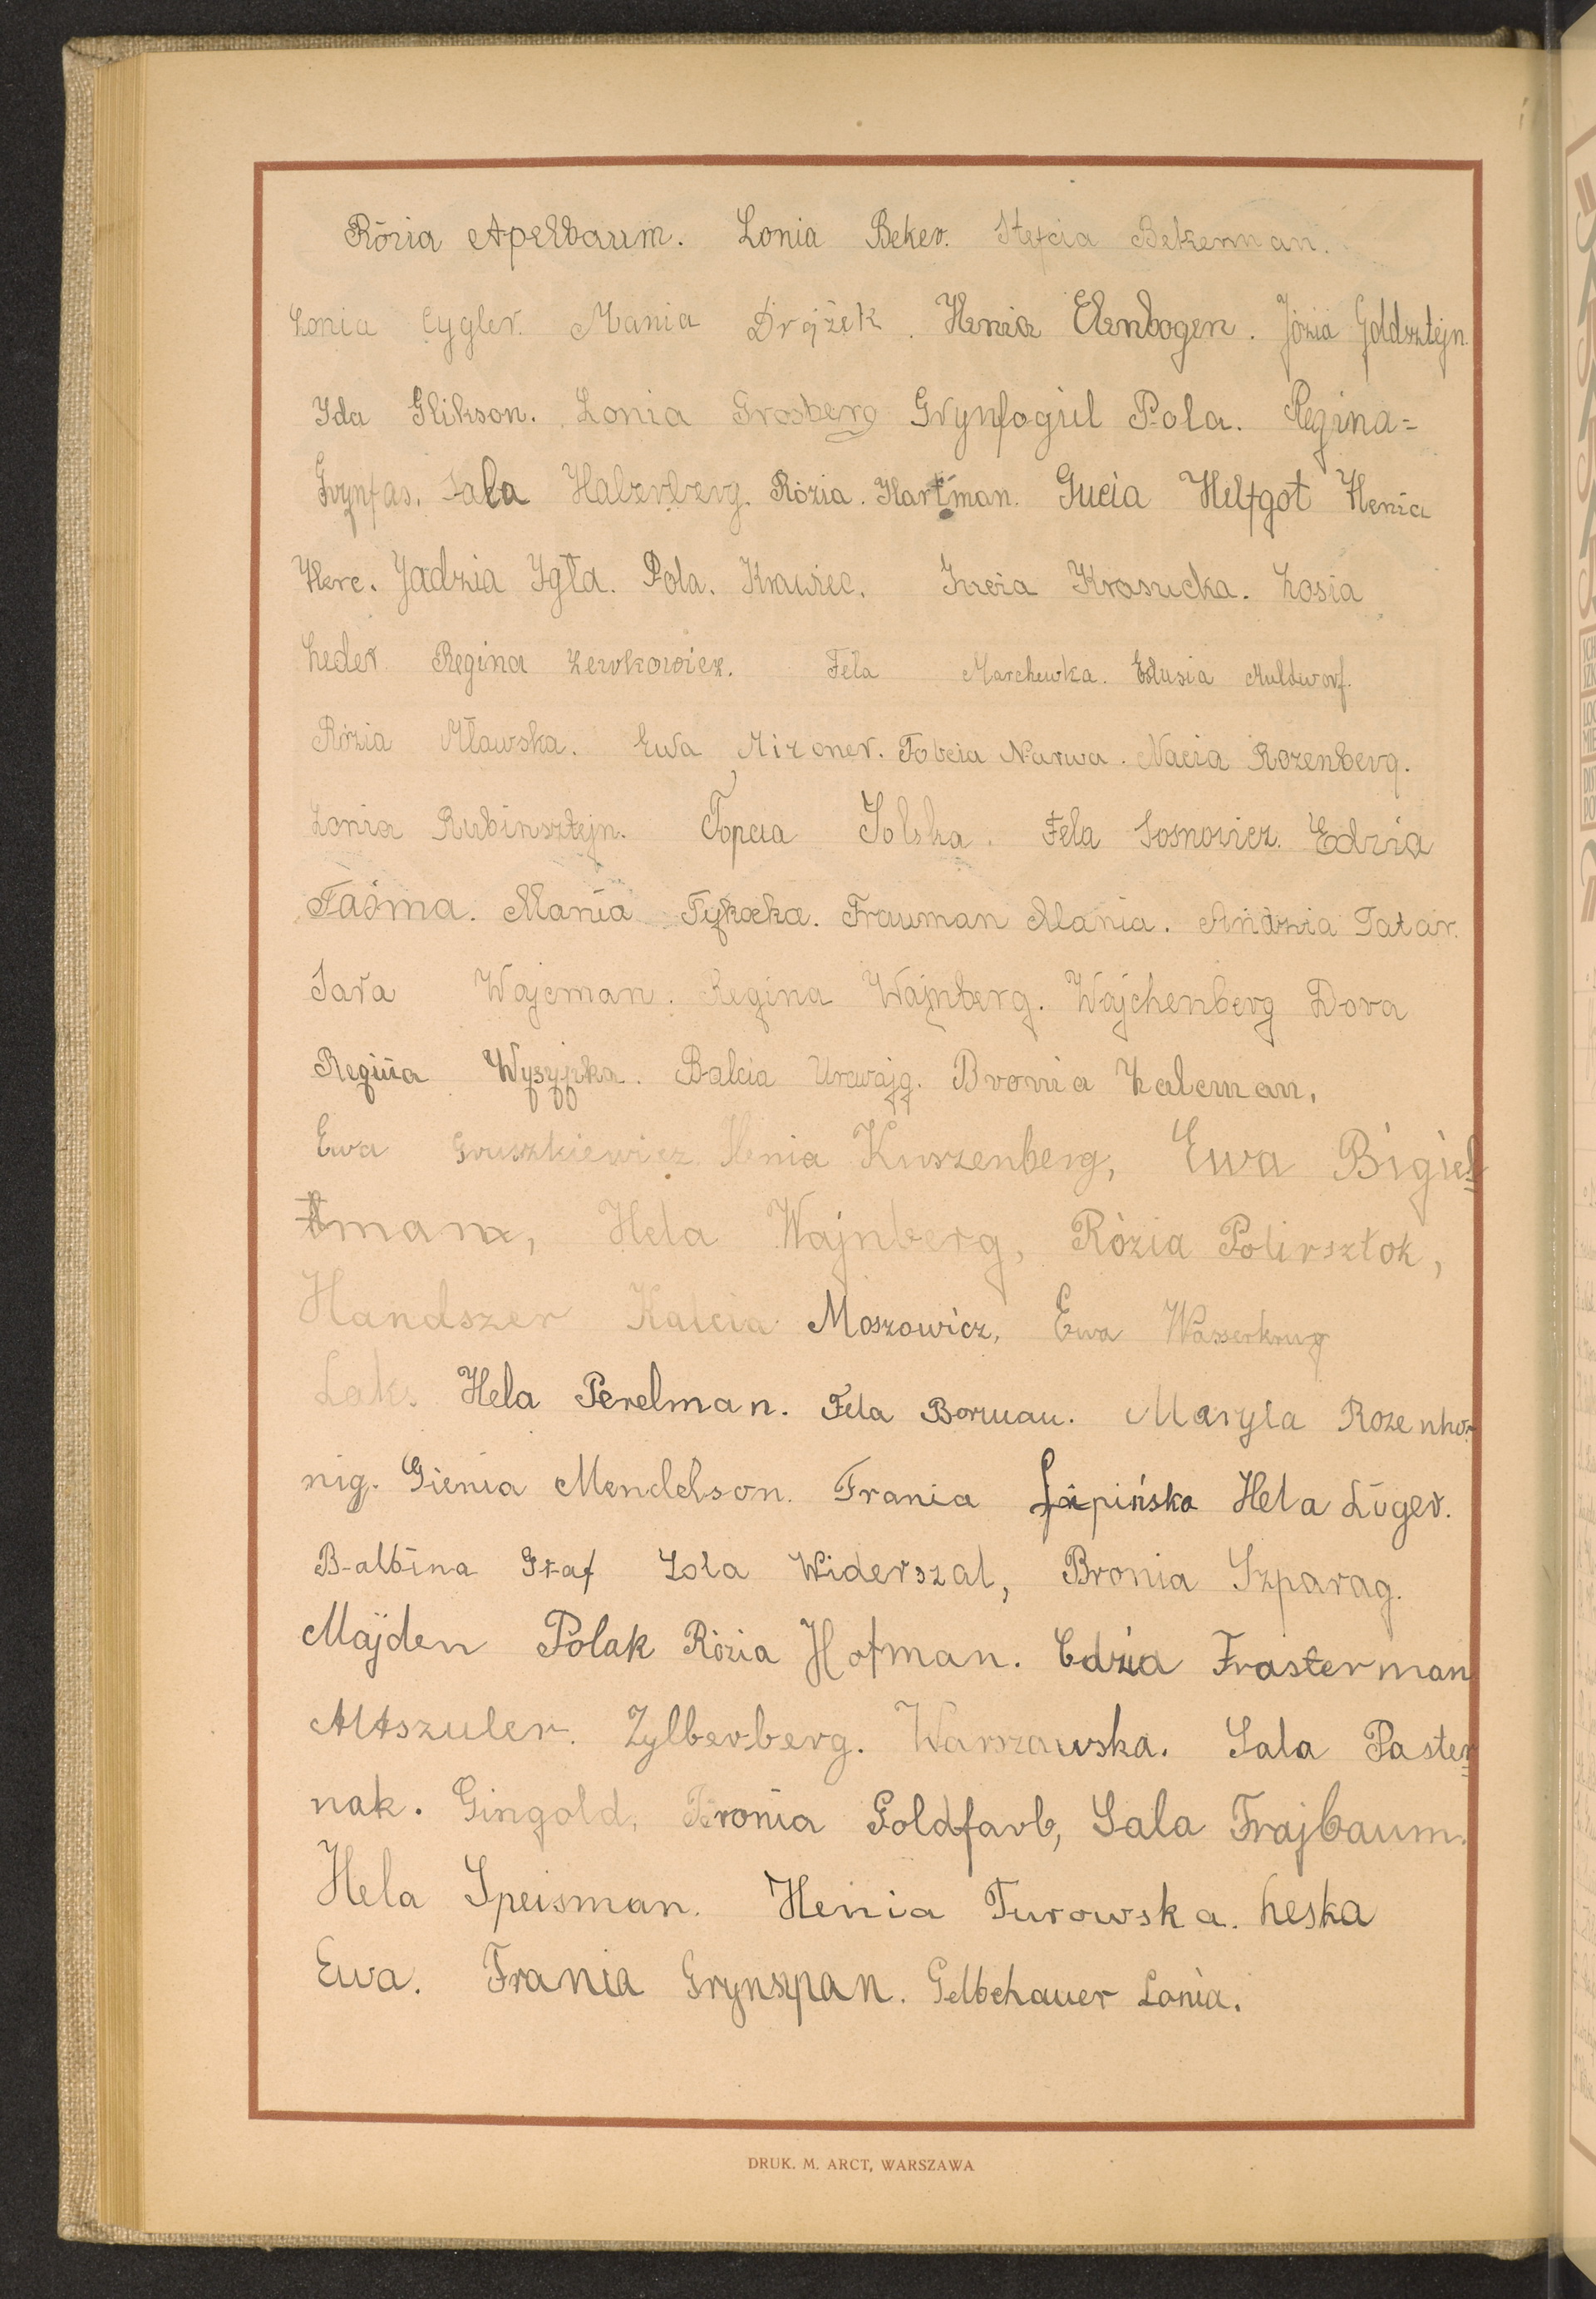 Rózia Apelbaum. Lonia Beker. Stefcia Bekerman.
Lonia Cygler. Mania Drążek. Henia Elenbogen. Józia Goldsztejn.
Ida Glikson. Lonia Grosberg Grynfogiel Pola. Regina=
Grynfas. Sala Halberberg. Rózia. Hartman. Gucia Helfgot Henia
Herc. Jadzia Igła. Pola. Krawiec. Krasucka. Zosia
Leder Regina Lewkowicz. Fela Marchewka. Edusia Muldworf.
Rózia Mławska. Ewa Mizoner. Tobcia Narwa. Nacia Rozenberg.
Lonia Rubinsztejn. Topcia Solska. Fela Sosnowicz. Edzia
Taśma. Mania Tykocka. Frauman Mania. Andzia Tatar.
Sara Wajcman. Regina Wajnberg. Wajchenberg Dora
Regina Wyszyńka. Balcia Urwajg. Bronia Zalcman.
Ewa Gruszkiewicz. Henia Kuszenberg, Ewa Bigiel=
man, Hela Wajnberg, Rózia Polirsztok,
Handszer Kalcia Moszowicz, Ewa Wasserkrug
Laks. Hela Perelman. Fela Bornau. Maryla Rozenhor
nig. Gienia Mendelson. Frania Łapińska Hela Luger.
Balbina Graf Lola Widerszal, Bronia Szparag.
Majden Polak Rózia Hofman. Edzia Frasterman
Altszuler. Zylberberg. Warszawska. Sala Paster=
nak. Gingold, Bronia Goldfarb, Sala Frajbaum.
Hela Speisman. Henia Turowska. Leska
Ewa. Frania Grynszpan. Gelbchauer Lonia.
DRUK. M. ARCT, WARSZAWA